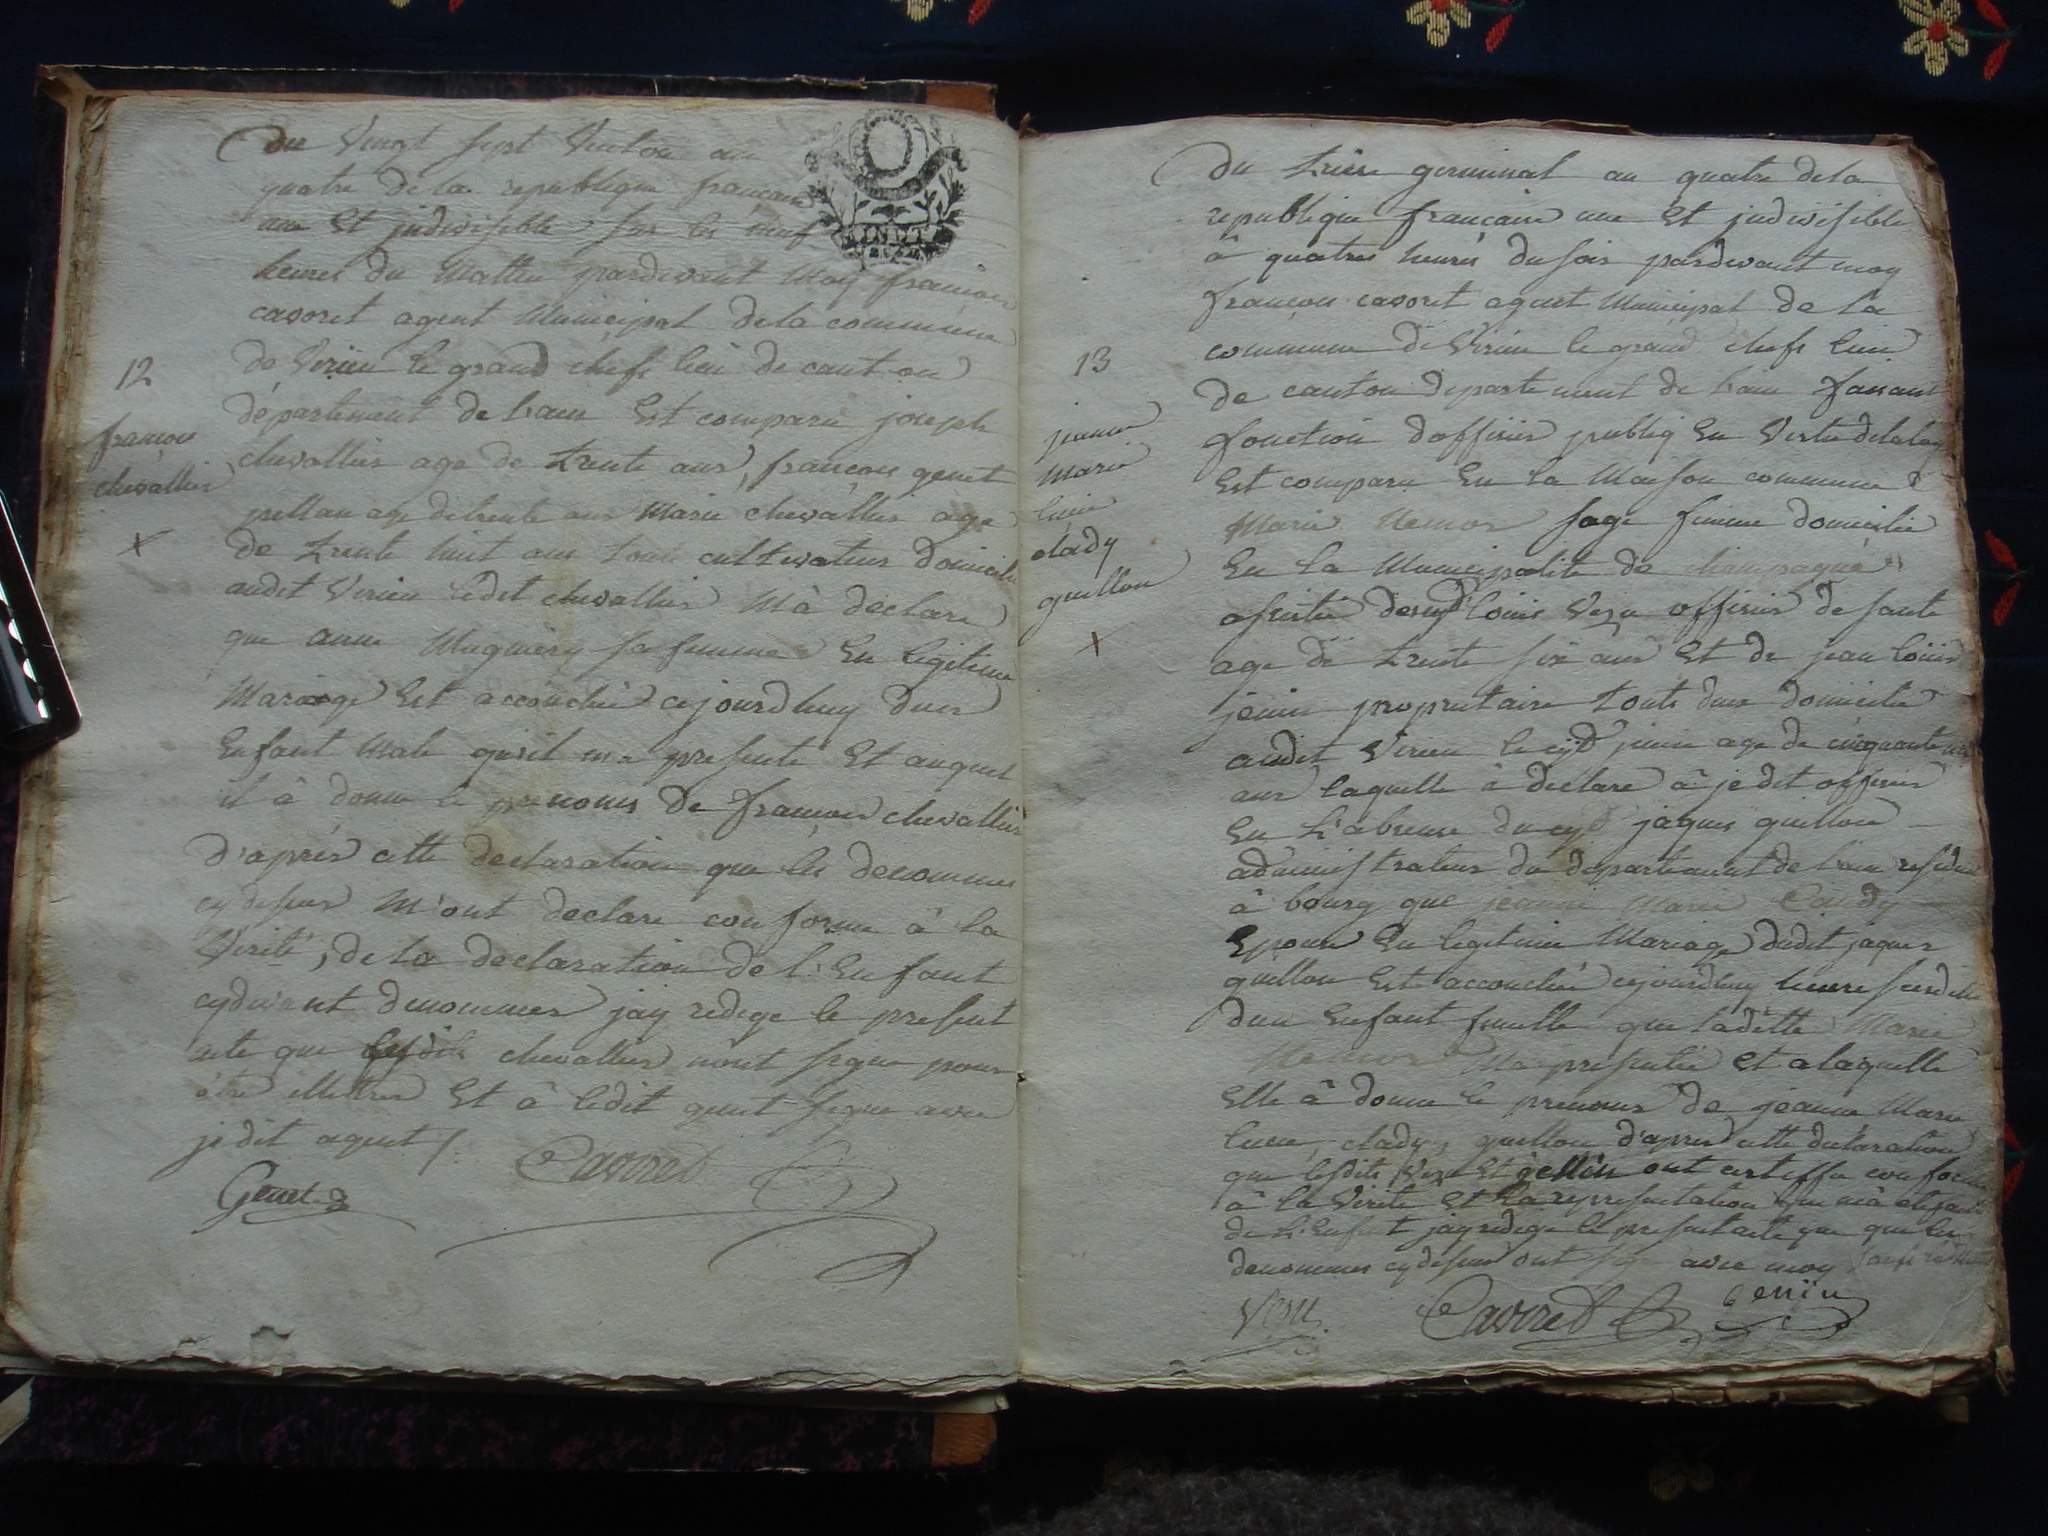 du Vingt sept Ventose an
quatre de la republique francaise
une Et judivisible sur les neuf
heures du Mattin pardevant Moy francois
cavoret agent Municipal dela commune
de Virieu le grand chefs lieu de canton
12
département de Lain Est comparu joseph
francois
chevallier age de trente ans, francois genet
chevallier
age de trente ans Marie chevallier age
de trente huit ans tous cultivateurs domicilie
audit Virieu ledit chevallier M'à declare
que anne Mugniery sa femme En legitime
Mariage Est accouchée cejourdhuy dun
Enfant Male qu'il ma presente Et auquel
il à donne le prenoms de francois chevallier
d'aprés cette declaration que les denommes
cy dessus M'ont declare conforme à la
Verité, de la declaration de l'Enfant
cydevant denommer jay redige le present
acte que chevallier n'ont signe pour
être illettres Et à ledit genet signe avec
je dit agent /.
Genet Cavoret
du treize germinal an quatre dela
republique francaise une Et judivisible
à quatres heures du soir pardevant moy
francois cavoret agent Municipal de la
commune de Virieu le grand chefs lieu
13
de canton departement de Lain faisant
jeanne
fonction dofficier publiq En Vertu delaloy
marie
Est comparu En la Maison commune
lucie
Marie Nemos sage femme domicilie
clady
En la Municipalite de
guillon
assistée deceyd Louis Vezu officier de sante
age de trente six ans Et de jean Louis
jenin proprietaire touts deux domicilie
audit Virieu le cyd jenin age de cinquante
ans laquelle à declare à je dit officier
En L'absence du cyd jaques guillon
administrateur du departement de Lain
à bourg que jeanne Marie Caudy
Epouse En legitime Mariage dudit jaques
guillon Est accouchée cejourdhuy heure susdite
dun Enfant femelle que laditte Marie
Nemos Ma presentée Et alaquelle
Elle à donne le prenoms de jeanne Marie
lucie, clady, guillon d'apres cette declaration
que lesdits Vezu Et jennin ont certiffie conforme
à la Verite Et la representation qui mà eté faite
de L'Enfant jay redige le present acte que que les
denommes cy dessus ont signe avec moy
Vezu Cavoret Gennin